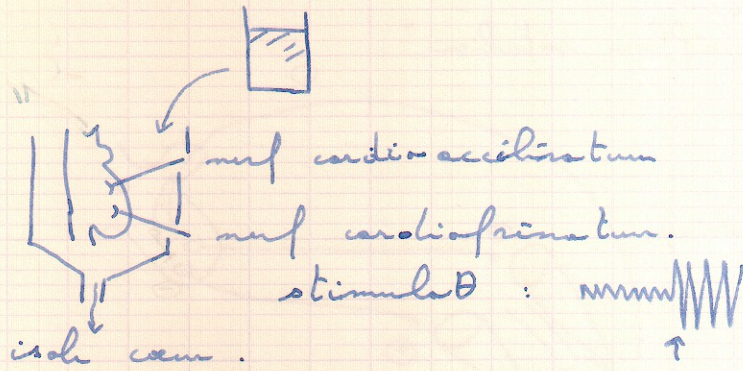 nerf cardioaccélérateur
nerf cardiofrénateur.
stimulatθ :
isole cœur.